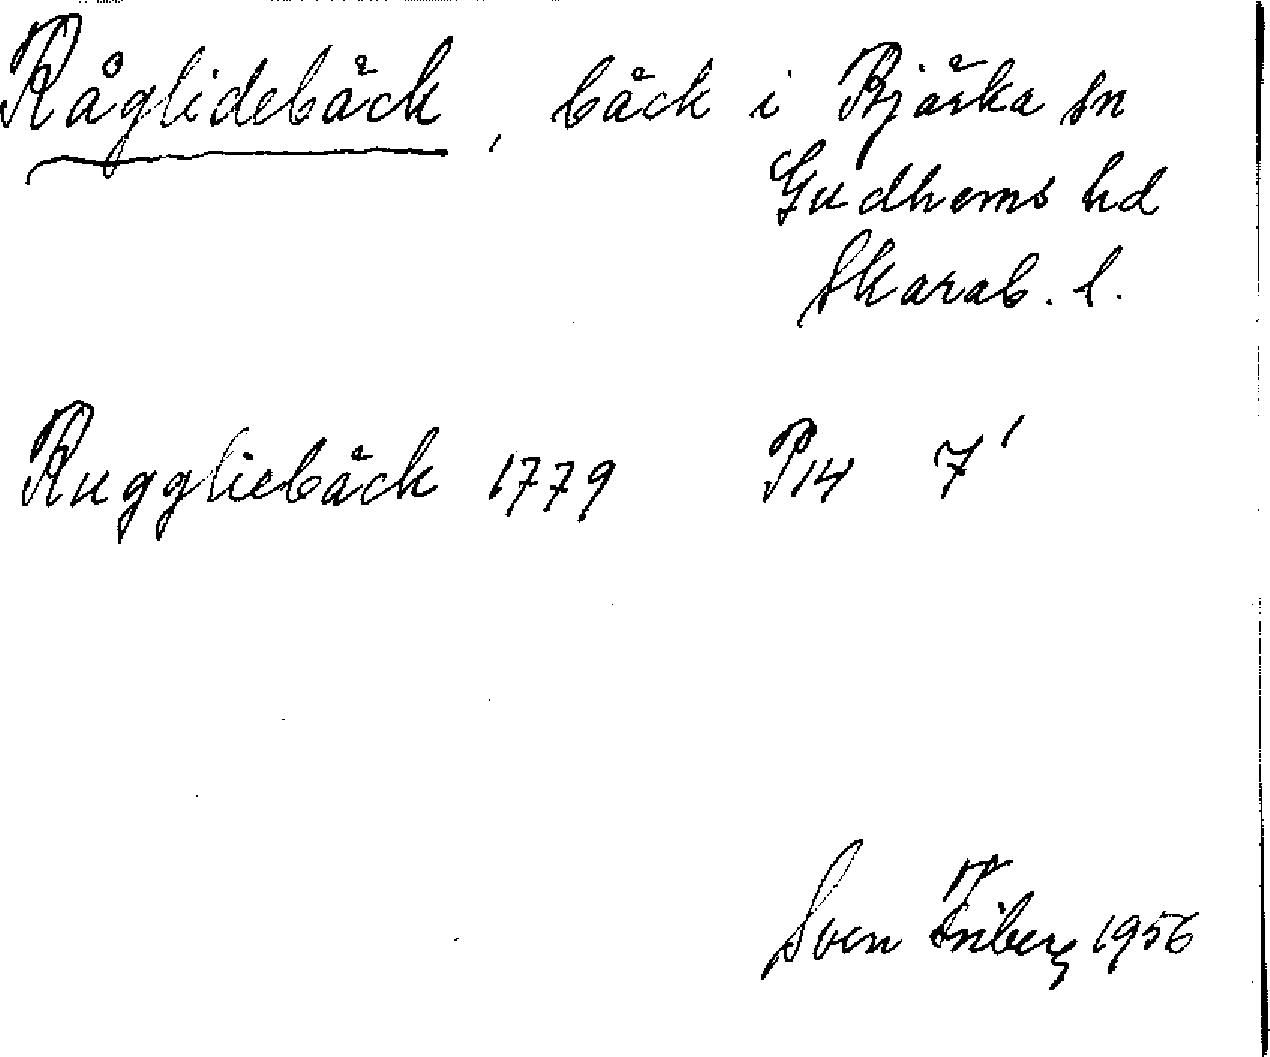 Råglidebäck, bäck i Bjärka sn
Gudhems hd
Skarab. l.
Ruggliebäck 1779 P14 7'
Sven Friberg 1956